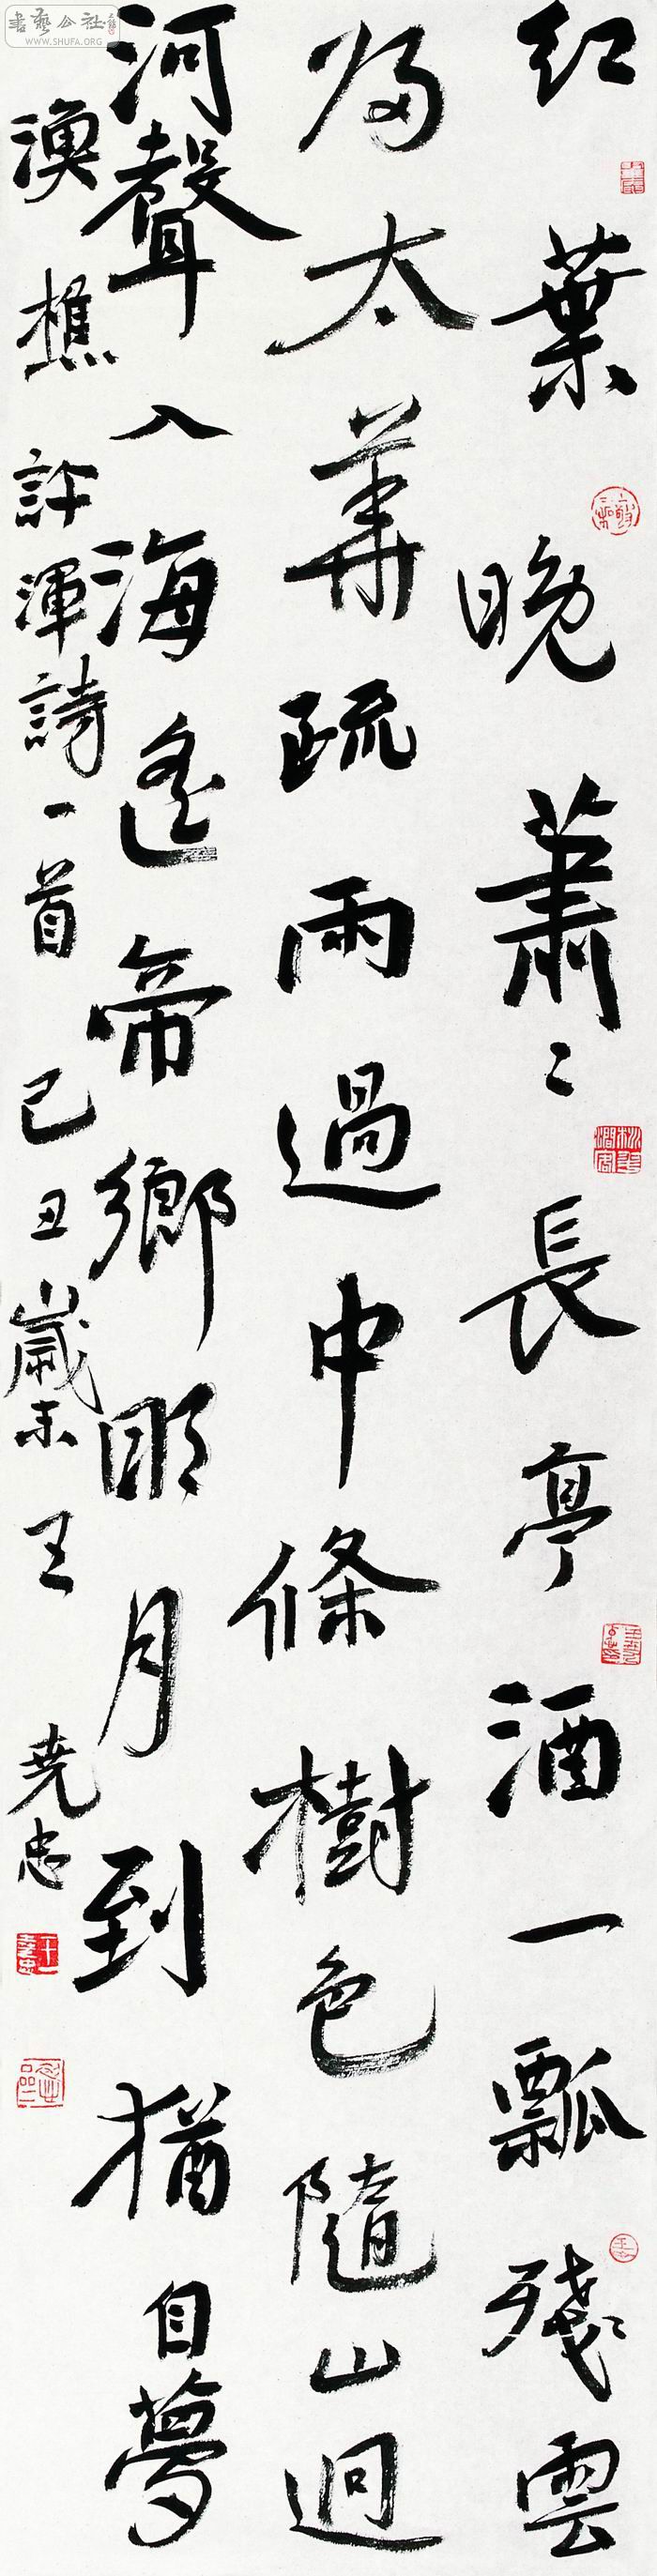 紅葉晚蕭〻長亭酒一瓢殘雲
歸太華疏雨過中條樹色隨山迥
河聲入海遙帝鄉明月到猶自夢
漁樵 許渾詩一首 己丑歲末 王堯忠
書藝公社
WWW.SHUFA.ORG